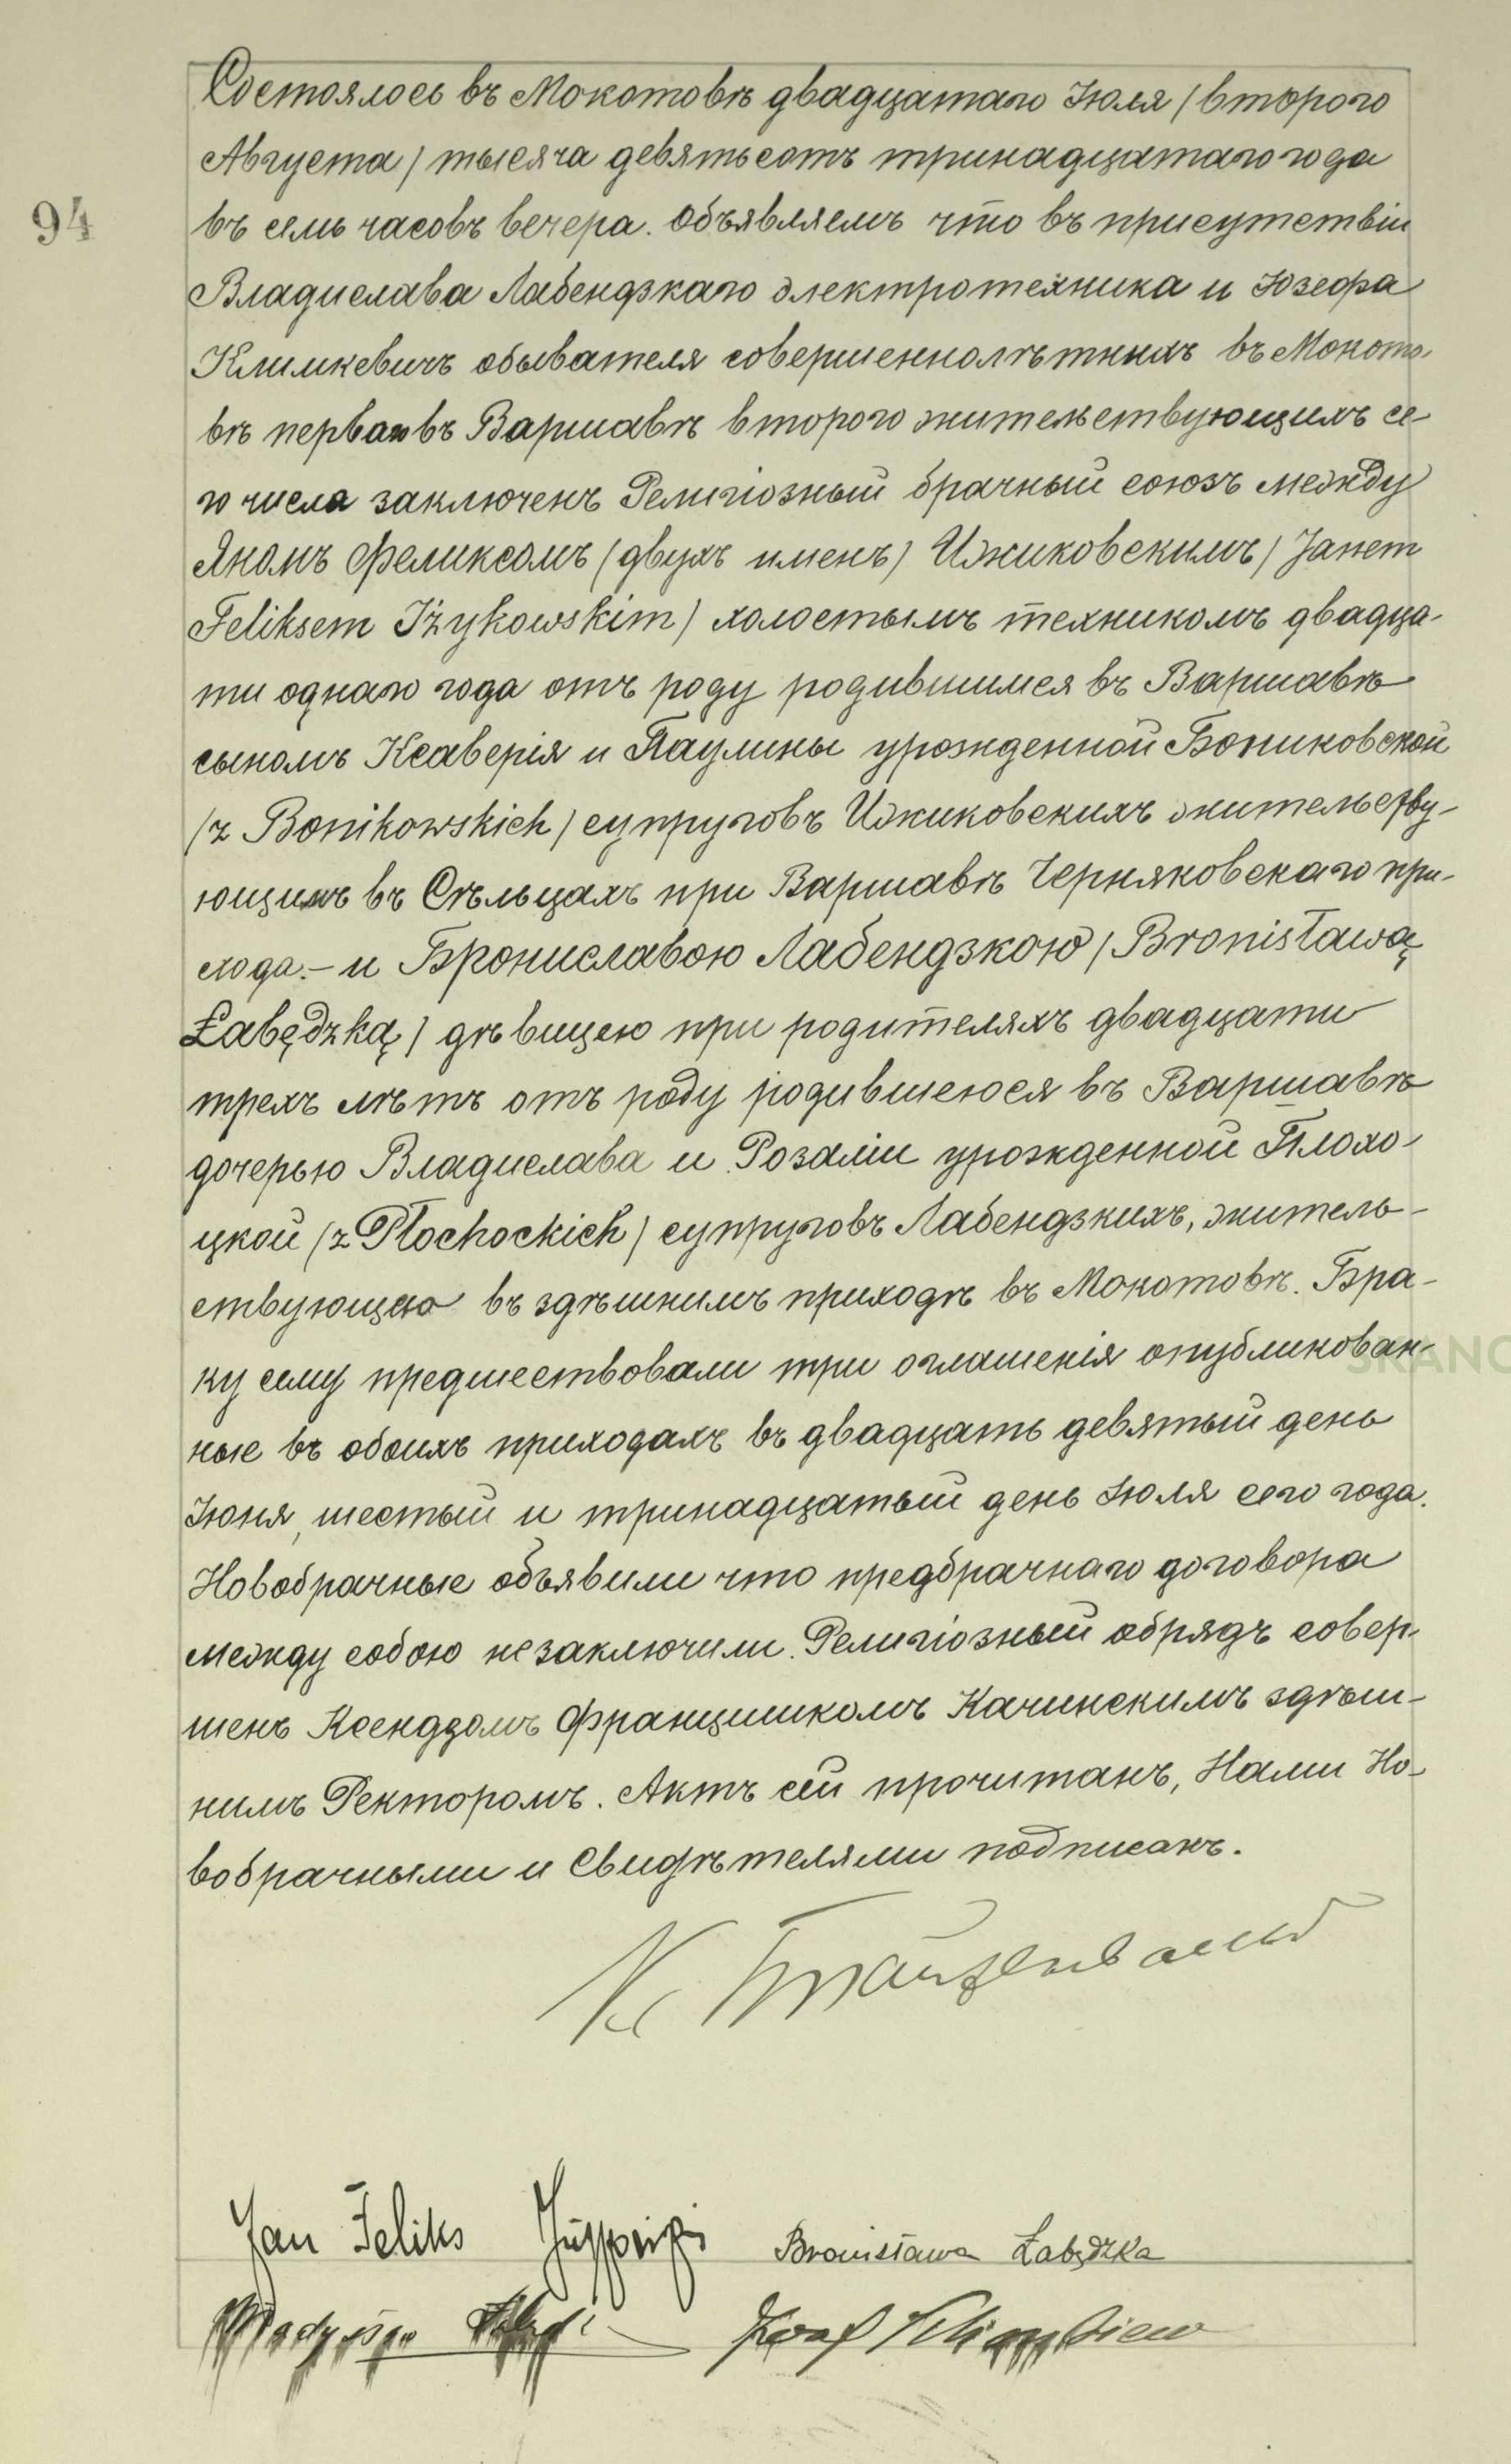 Состоялось въ Мокотовѣ двадцатаго Іюля / второго
94
Августа / тысяча девятьсотъ тринадцатаго года
въ семь часовъ вечера. Объявляемъ что въ присутствіи
Владислава Лабендзкаго электротехника и Юзефа
Климкевичъ обывателя совершеннолѣтнихъ въ Мокото-
вѣ перваго въ Варшавѣ второго жительствующихъ се-
го числа заключенъ Религіозный брачный союзъ между
Яномъ Феликсомъ (двухъ именъ) Ижиковскимъ / Janem
Feliksem Iżykowskim) холостымъ техникомъ двадца-
ти однаго года отъ роду родившимся въ Варшавѣ
сыномъ Ксаверія и Паулины урожденной Бониковской
(z Bonikowskich) супруговъ Ижиковскихъ жительству-
ющимъ въ Сѣльцахъ при Варшавѣ Черняковскаго при-
хода.– и Брониславою Лабендзкою / Bronisławą
Łabędzką) дѣвицею при родителяхъ двадцати
трехъ лѣтъ отъ роду родившеюся въ Варшавѣ
дочерью Владислава и Розаліи урожденной Плохо-
цкой (z Płochockich) супруговъ Лабендзкихъ, житель-
ствующею въ здѣшнимъ приходѣ въ Мокотовѣ. Бра-
ку сему предшествовали три оглашенія опубликован-
ные въ обоихъ приходахъ въ двадцать девятый день
Іюня, шестый и тринадцатый день Іюля сего года.
Новобрачные объявили что предбрачнаго договора
между собою незаключили. Религіозный обрядъ совер-
шенъ Ксендзомъ Францишкомъ Качинскимъ здѣш-
нимъ Ректоромъ. Актъ сей прочитанъ, Нами Но-
вобрачными и Свидѣтелями подписанъ.
Jan Feliks
Bronisława Łabędzka
Józef